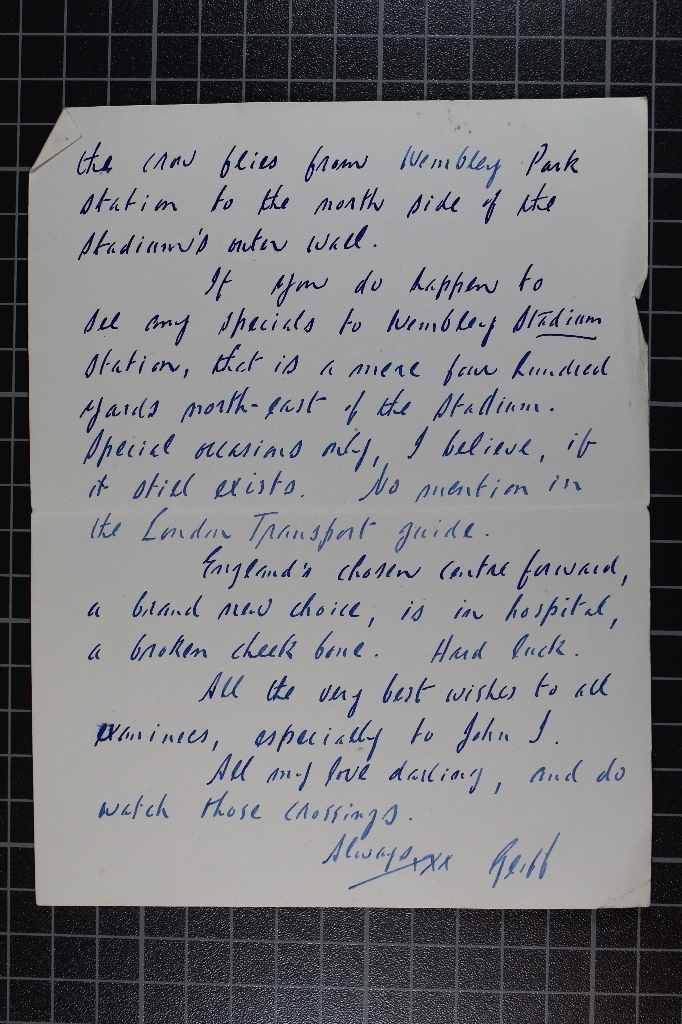 the crow flies from Wembley Park
station to the north side of the
stadium's outer wall.
If you do happen to
see any specials to Wembley Stadium
station, that is a mere four hundred
yards north-east of the stadium.
Special occasions only, I believe, if
it still exists. No mention in
the London Transport guide.
England's chosen centre forward,
a brand new choice, is in hospital,
a broken cheek bone. Hard luck.
All the very best wishes to all
examinees, especially to John J.
All my love darling, and do
watch those crossings.
Always xxx Geoff